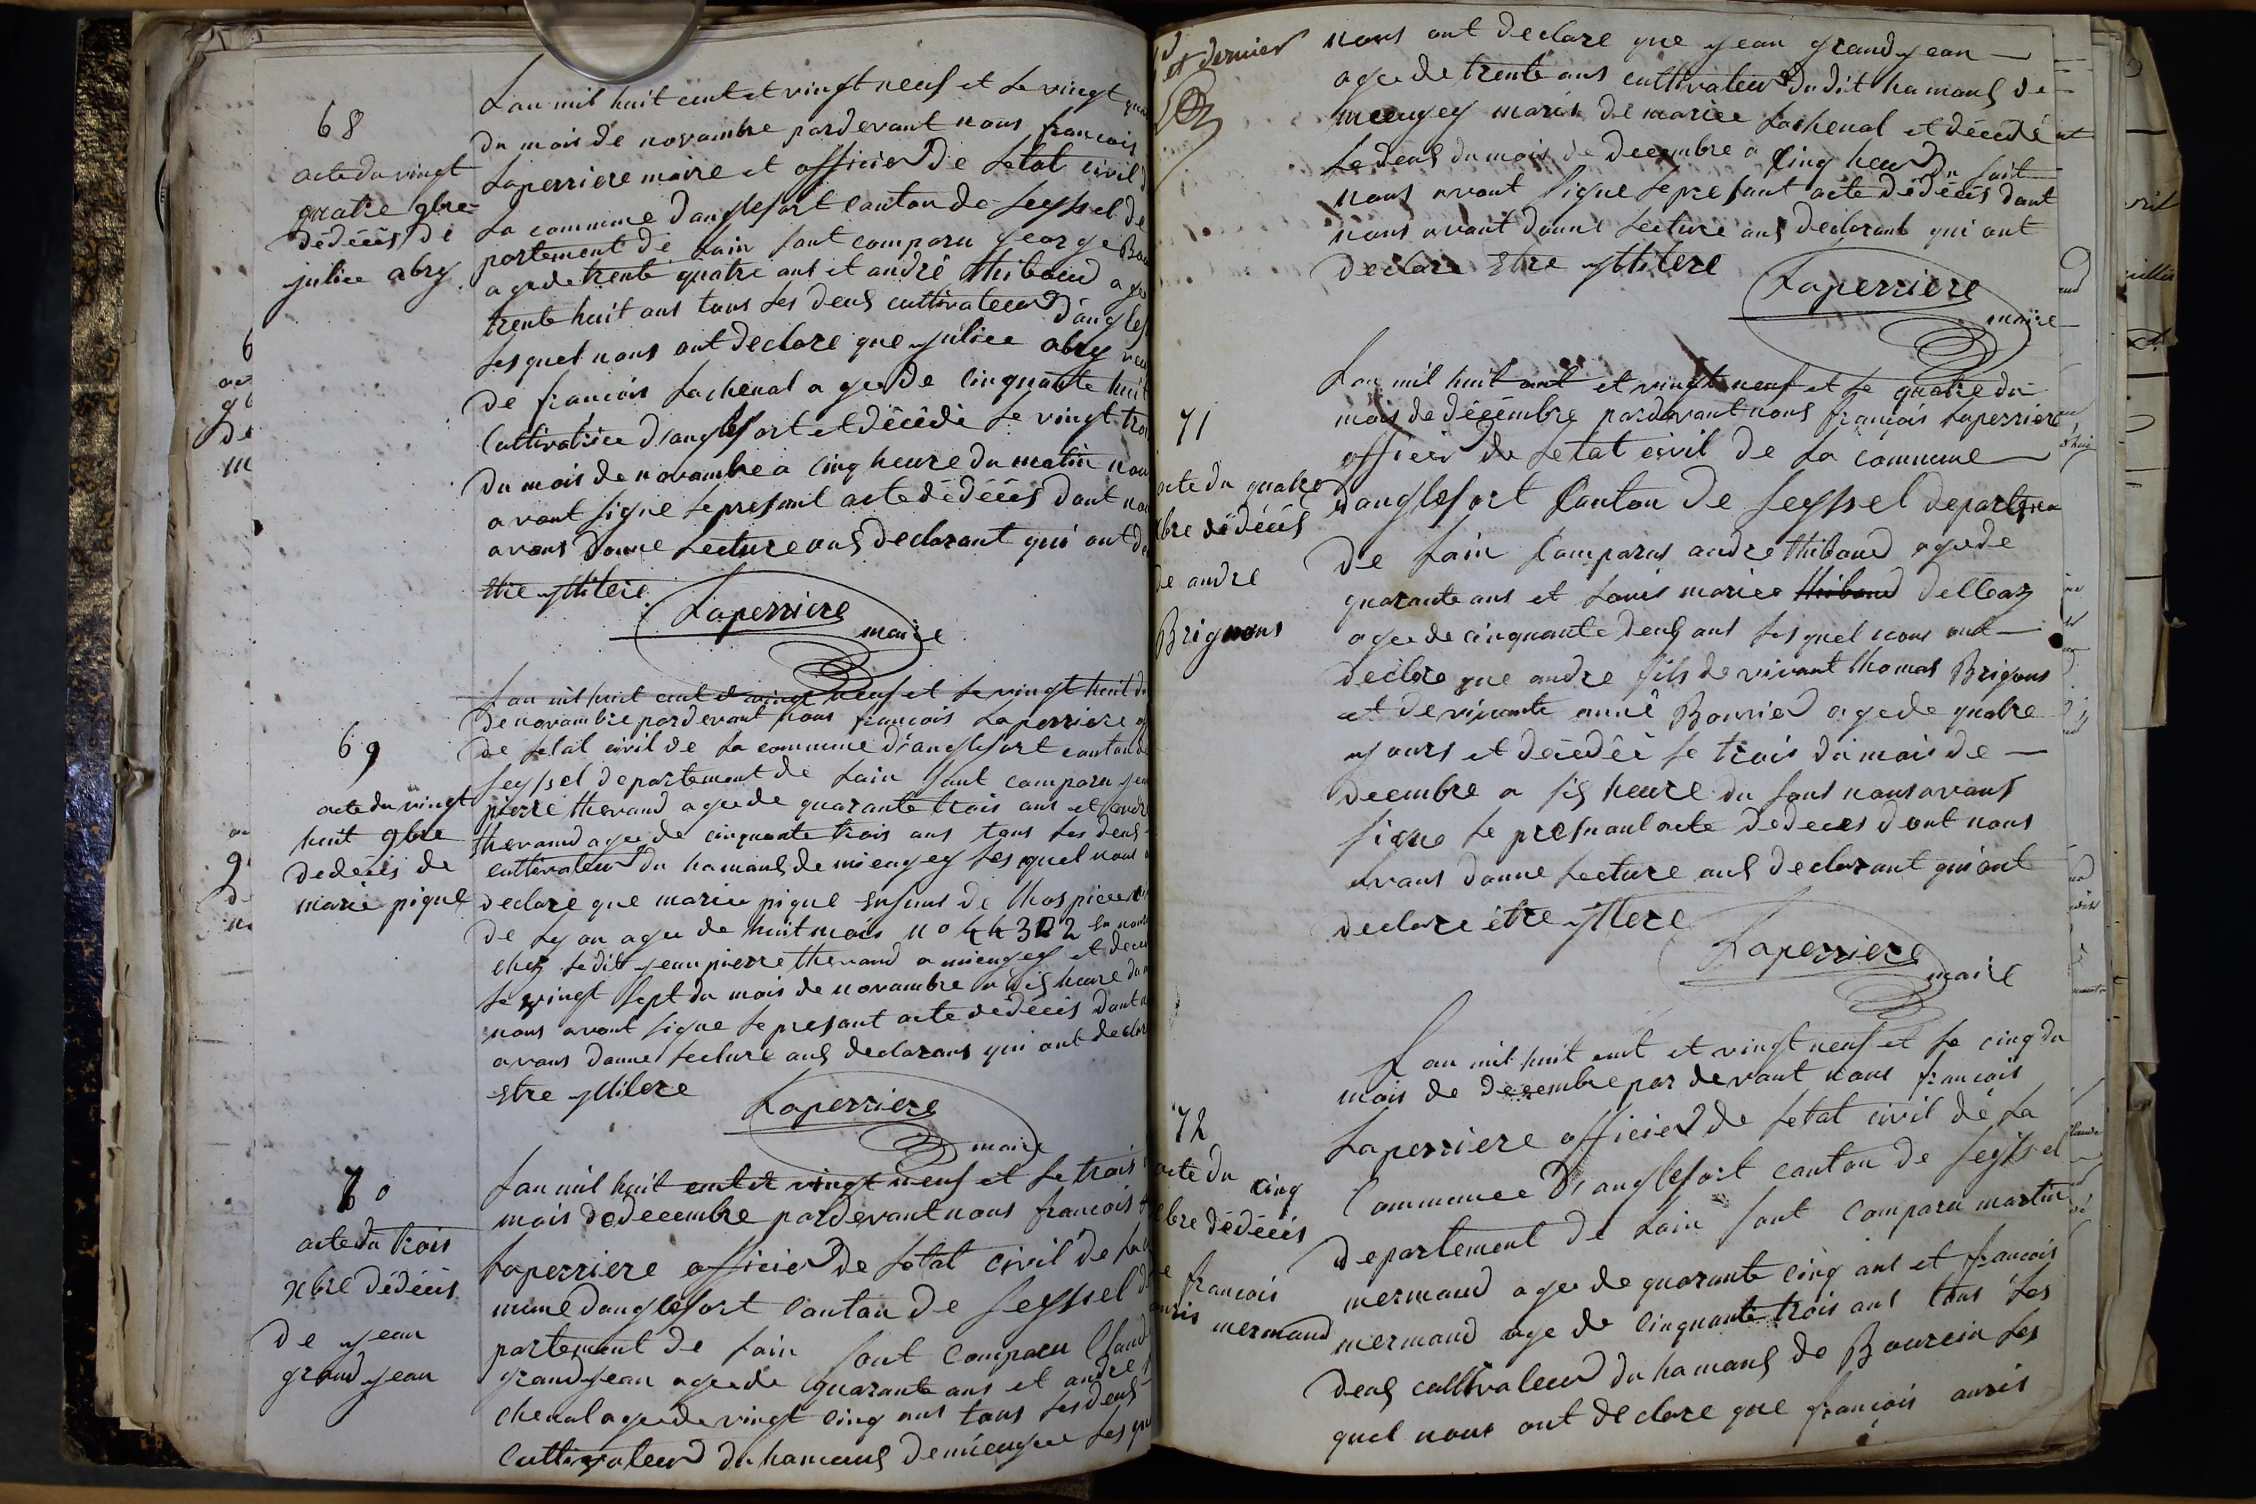 68
acte du vingt
quatre 9bre
dédécés de
juliee abry
Lan mil huit cent et vingt neuf et le vingt
du mois de novambre pardevant nous francois
Laperriere maire et officier de letat civil
La commune danglefort canton de Seyssel de
partement de Lain sont comparu george
agede trente quatre ans et andré thiboud age
trente huit ans tous les deux cultivateur d'anglef
lesquel nous ont declare que juliee abry
de francois Lachenal agee de cinquante huit
Cultivatrice d'anglefort et décédé le vingt troi
du mois de novambre a cinq heure du matin nou
avont signe le presant acte dédécés dont nou
avons donne lecture aux declarant qui ont de
Etre yllitere
Laperriere
maire
69
acte du vingt
huit 9bre
dedecés de
marie pigut
Lan mil huit cent et vingt neuf et le vingt huit du
de novambre pardevant nous francois Laperriere of
de letat civil de la commune d'anglefort canton de
Seyssel departement de Lain sont comparu jean
pierre thevand agee de quarante trois ans et andre
thevand agee de cinquante trois ans tous les deux
cultivateur du hamaux de miengey lesquel nous
declare que mariee pigut Enfans de Lhospice
de Lyon agee de huit mois no
chez ledit jean pierre thevand a miengey et dece
le vingt sept du mois de novambre a dix heure du
nous avont signe le presant acte dédécés dont n
avons donne lecture aux declarans qui ont declar
Etre yllitere
Laperriere
maire
70
acte du trois
xbre dédécés
de jean
grand jean
Lan mil huit cent et vingt neuf et le trois
mois de decembre pardevant nous francois
Laperriere officier de letat civil de la
mune danglefort canton de Seyssel d
partement de Lain sont comparu Claude
grand jean agede quarante ans et andre
chenal agede vingt cinq ans tous les deux
Cultivateur du hamaux de miengey les qu
et dernier
nous ont declare que jean grand jean
age de trente ans cultivateur du dit hamaux de
miengey maris de mariee Lachenal et décédé
le deux du mois de decembre a cinq heur du soir
nous avont signe le presant acte dédécés dont
nous avont donné lecture aux declarant qui ont
declare Etre yllitere
Laperriere
maire
71
acte du quatre
xbre dédécés
de andre
Brigons
Lan mil huit cent et vingt neuf et le quatre du
mois de décembre pardevant nous françois Laperriere
officier de letat civil de la commune
danglefort Canton de Seyssel departemen
de Lain Comparus andre thiboud agede
quarante ans et Louis mariee thiboud delloaz
agee de cinquante deux ans lesquel nous ont
declare que andre fils de vivant thomas Brigons
et de vivante anné Bouvier agede quatre
jours et décédéé le trois du mois de
decembre a six heure du soir nous avans
signe le presnant acte dedeces dont nous
avans donne lecture aux declarant qui ont
declare être yllere
Laperriere
maire
72
acte du cinq
xbre dédécés
de francois
auris mermaud
Lan mil huit cent et vingt neuf et le cinq du
mois de decembre par devant nous francois
Laperriere officier de letat civil de la
Communee D'anglefort canton de Seyssel
departement de Lain sont comparu martin
mermaud agee de quarante cinq ans et francois
mermaud age de cinquante trois ans tous les
deux cultivateur du hamaux de Bourcin les
quel nous ont declare que francois auris